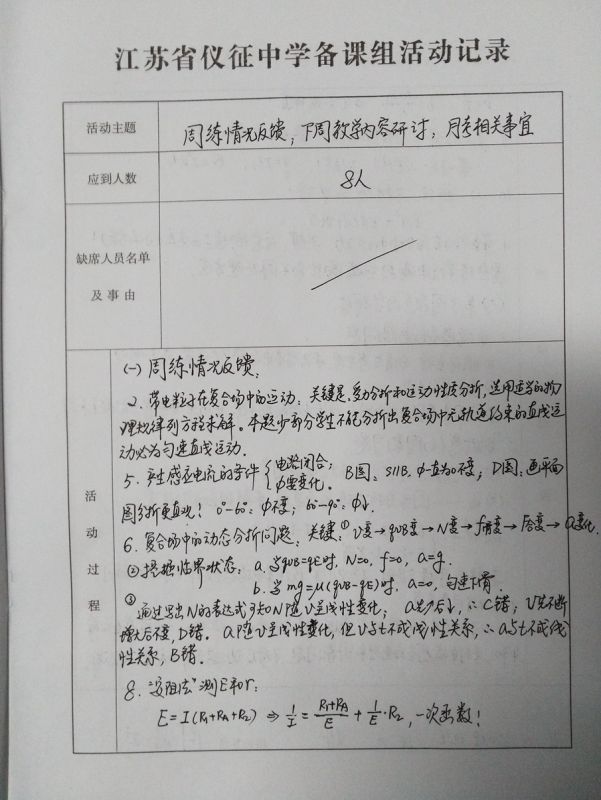 江苏省仪征中学备课组活动记录
活动主题
周练情况反馈，下周教学内容研讨，月考相关事宜
应到人数
8人
缺席人员名单
及事由
活动过程
(一) 周练情况反馈.
2. 带电粒子在复合场中的运动：关键是受力分析和运动性质分析，选用适当的物
理规律列方程求解。本题少部分学生不能分析出复合场中无轨道约束的直线运
动必为匀速直线运动.
5. 产生感应电流的条件{电路闭合；
Φ要变化. B图：S∥B, Φ一直为0不变；D图：画平面
图分析更直观！0°-60°：Φ不变；60°-90°：Φ↓.
6. 复合场中的动态分析问题：关键：① v变→qvB变→N变→f滑变→F合变→a变化.
② 把握临界状态：a. 当qvB=qE时, N=0, f=0, a=g.
b. 当mg=μ(qvB-qE)时, a=0, 匀速下滑.
③ 通过写出N的表达式可知N随v呈线性变化；a先↑后↓, ∴C错；v先不断
增大后不变, D错. a随v呈线性变化, 但v与t不成线性关系, ∴a与t不成线
性关系, B错.
8. "安阻法"测E和r:
E=I(R₁+R_A+R₂) ⇒ 1/I = (R₁+R_A)/E + 1/E·R₂, 一次函数！